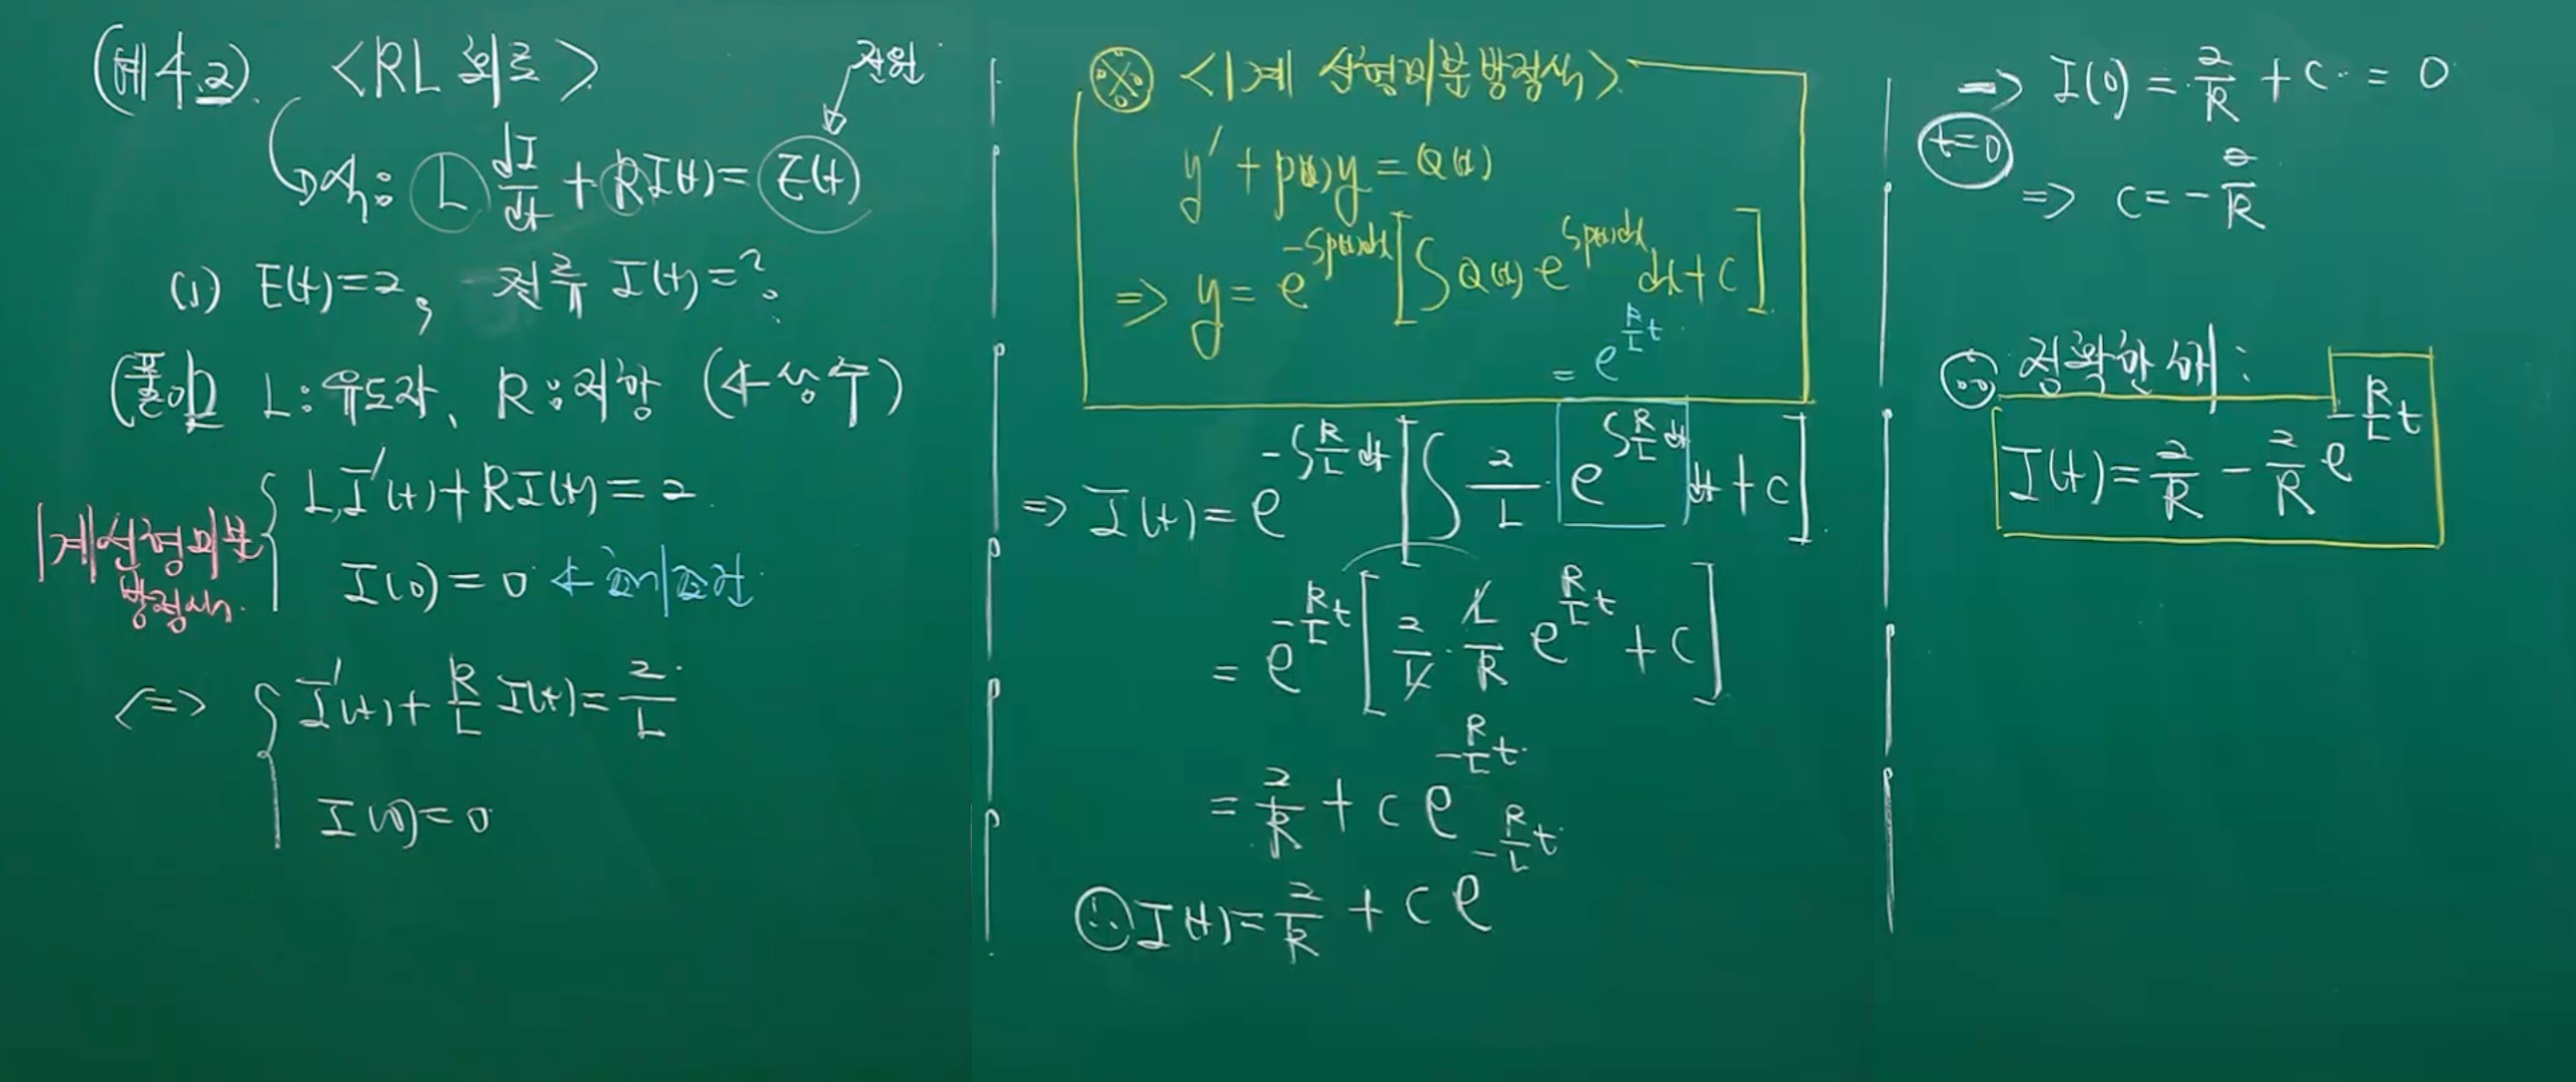 (예4.2) <RL 회로>
전원
식: L dI/dt + RI(t) = E(t)
(1) E(t)=2, 전류 I(t)=?
(풀이) L:유도자, R:저항 (상수)
1계선형미분
방정식.
L I'(t)+RI(t)=2
I(0)=0 초기조건
<=> I'(t)+R/L I(t)=2/L
I(0)=0
※ <1계 선형미분방정식>
y'+p(x)y=Q(x)
=> y=e^{-∫p(x)dx}[∫Q(x)e^{∫p(x)dx}dx+C]
=e^{R/L t}
=> I(t)=e^{-∫R/L dt}[∫2/L·e^{∫R/L dt}dt+C]
=e^{-R/L t}[2/L·L/R e^{R/L t}+C]
=2/R+Ce^{-R/L t}
∴ I(t)=2/R+Ce^{-R/L t}
→ I(0)=2/R+C=0
t=0
=> C=-2/R
∴ 정확한 해:
I(t)=2/R-2/R e^{-R/L t}